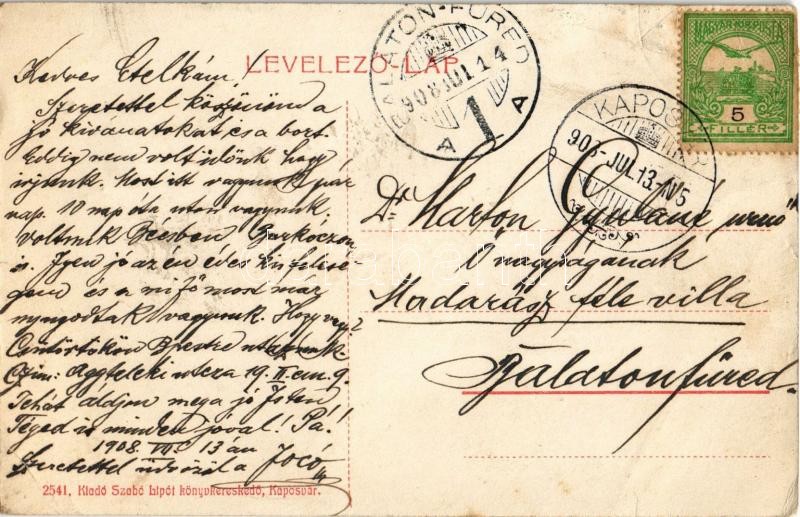 LEVELEZŐ-LAP.
BALATON-FÜRED
908 JUL 14
1
A A
MAGYAR KIR. POSTA
5
FILLÉR
KAPOSVÁR
908 JUL. 13.
Kedves Etelkám!
Szeretettel köszönöm a
jó kivánatokat és a bort.
Eddig nem volt időnk hogy
irjunk. Most itt vagyunk pár
nap. 10 nap óta uton vagyunk,
voltunk Bécsben
is. Igen jó az én édes
és a mi fő most már
nyugodtak vagyunk. Hogy vagy?
Csütörtökön Bpestre
Czim: Aggteleki utcza 19. II. em. 9.
Tehát áldjon meg a jó Isten
Téged is minden jóval! Pá!
1908. VII. 13 án
Szeretettel üdvözöl a Joco
Dr. Marton Gyuláné
Ő nagyságának
Madarász féle villa
Balatonfüred
2541, Kiadó Szabó Lipót könyvkereskedő, Kaposvár.